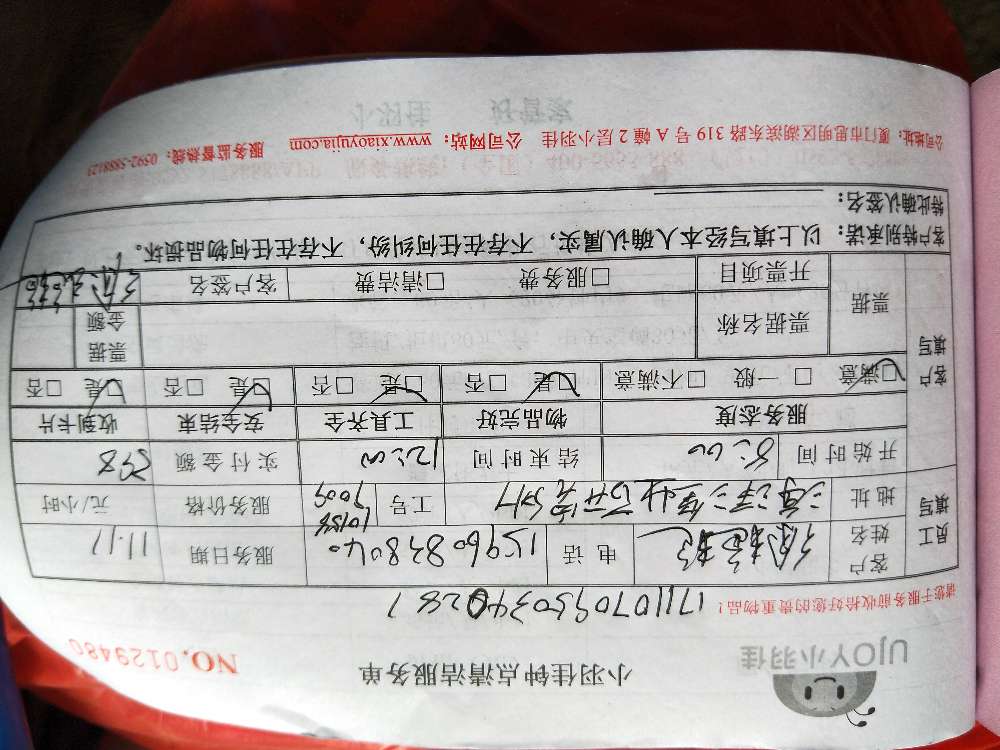 UJOY小羽佳
小羽佳钟点清洁服务单
NO.0129480
请您于服务前收拾好您的贵重物品！
1711070950340281
员工填写
客户姓名
电话 15960838040
服务日期 11.17
地址
工号 10186 7009
服务价格 元/小时
开始时间 8:00 结束时间 12:00 实付金额 398
客户填写
服务态度 物品完好 工具齐全 安全结束 收到卡片
☑满意 □一般 □不满意 ☑是 □否 ☑是 □否 ☑是 □否 ☑是 □否
票据 票据名称 票据金额
开票项目 □服务费 □清洁费 客户签名
客户特别承诺：以上填写经本人确认属实，不存在任何纠纷，不存在任何物品损坏。
特此确认签名：
公司地址：厦门市思明区湖滨东路319号A幢2层小羽佳 公司网站：www.xiaoyujia.com 服务监督热线：0592-5888123